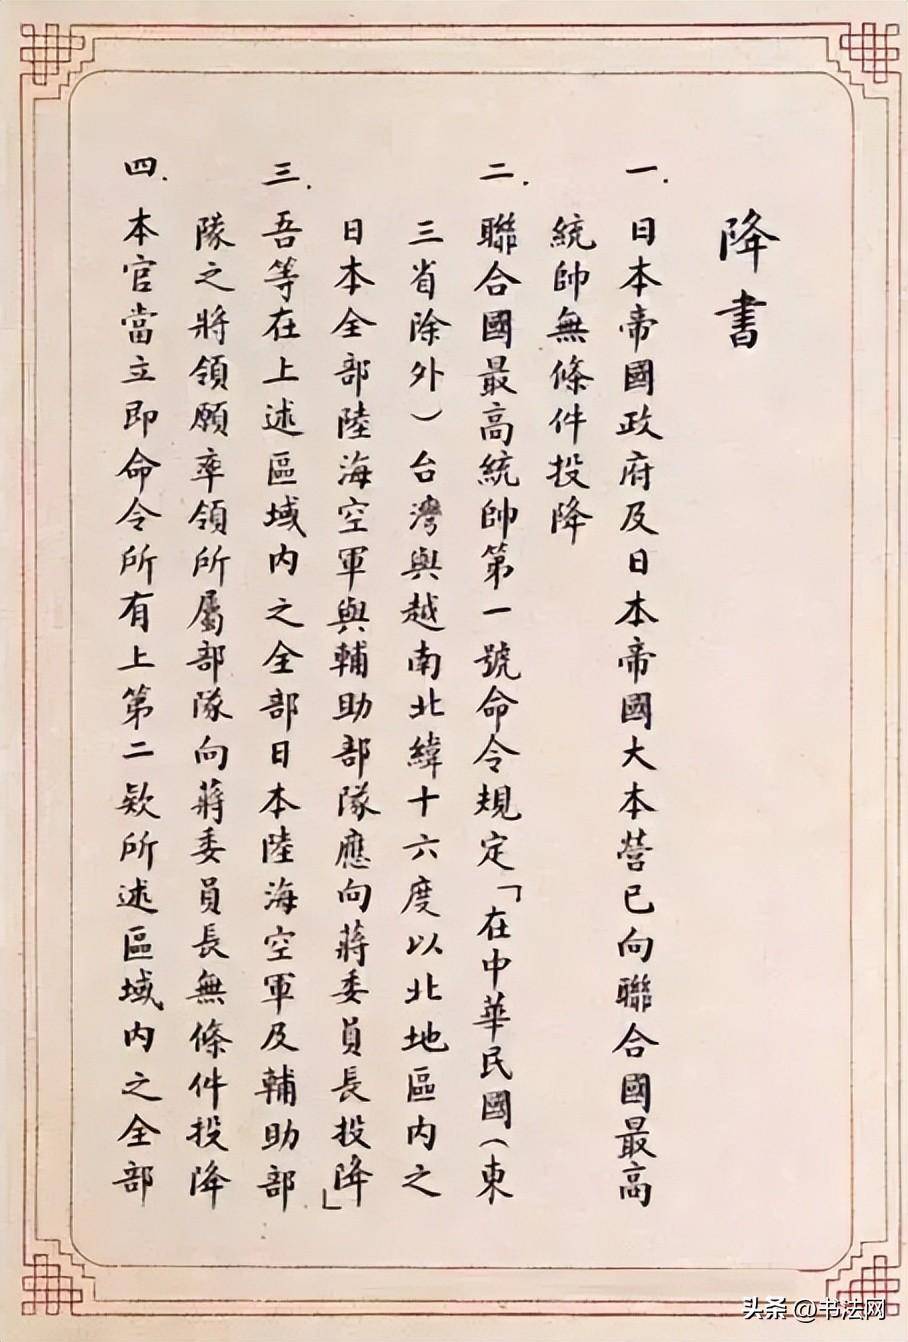 降書
一.日本帝國政府及日本帝國大本營已向聯合國最高
統帥無條件投降
二.聯合國最高統帥第一號命令規定「在中華民國(東
三省除外)台灣與越南北緯十六度以北地區內之
日本全部陸海空軍與輔助部隊應向蔣委員長投降」
三.吾等在上述區域內之全部日本陸海空軍及輔助部
隊之將領願率領所屬部隊向蔣委員長無條件投降
四.本官當立即命令所有上第二款所述區域內之全部
头条 @书法网